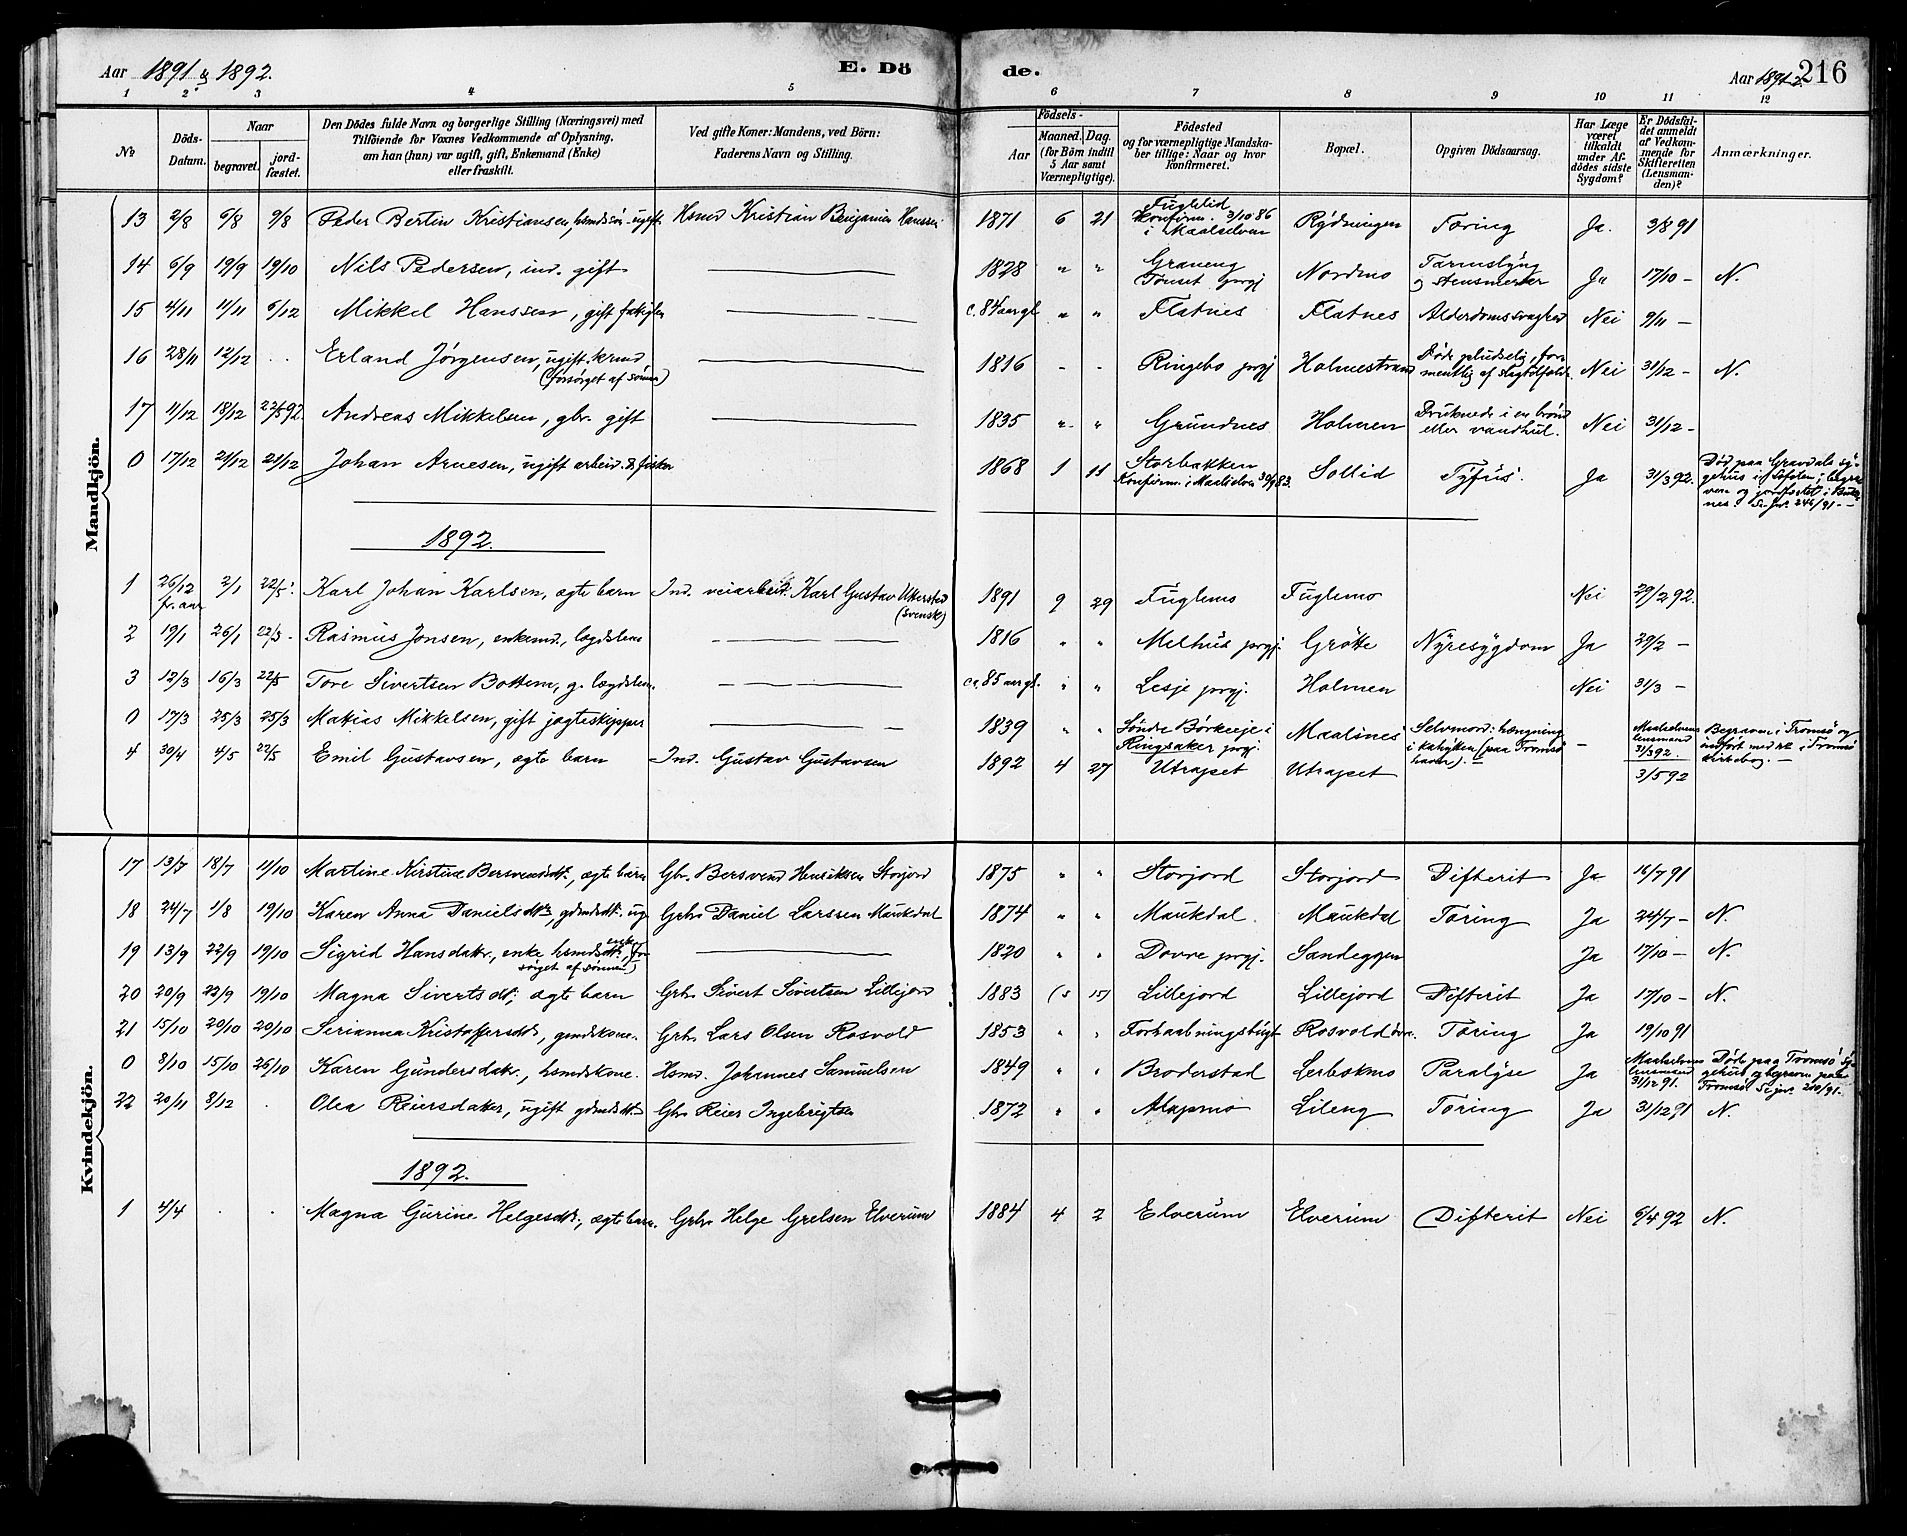 Aar 1891 & 1892.
E. Dö
de.
Aar 1891-2. 216
1 2 3 4 5 6 7 8 9 10 11 12
No
Döds-Datum.
Naar
begravet.
jord-fæstet.
Den Dödes fulde Navn og borgerlige Stilling (Næringsvei) med
Tilföiende for Voxnes Vedkommende af Oplysning,
om han (hun) var ugift, gift, Enkemand (Enke)
eller fraskilt.
Ved gifte Koner: Mandens, ved Börn:
Faderens Navn og Stilling.
Födsels-
Aar
Maaned. Dag.
(for Börn indtil
5 Aar samt
Værnepligtige).
Födested
og for værnepligtige Mandska-
ber tillige: Naar og hvor
konfirmeret.
Bopæl.
Opgiven Dödsaarsag.
Har Læge
været
tilkaldt
under Af-
dödes sidste
Sygdom?
Er Dödsfal-
det anmeldt
af Vedkom-
mende for
Skifteretten
(Lensman-
den)?
Anmærkninger.
Mandkjön.
13 2/8 6/8 9/8 Peder Bertin Kristiansen, hsmdssön ugift Hsmd Kristian Benjamin Hanssen 1871 6 21 Fuglelid Konfirm. 3/10 86 i Maalselven Rydningen Tæring Ja. 3/8 91
14 6/9 19/9 19/10 Nils Pedersen, ind. gift 1828 " " Graneng Tönset prgj Nordmo Tarmslyng og stensmerter Ja 17/10 - N.
15 4/11 11/11 6/12 Mikkel Hanssen, gift c. 84 aar gl " " Flatnes Flatnes Alderdomssvaghed Nei 9/11 -
16 28/11 12/12 . . Erland Jørgensen, ugift (forsörget af sönnen) 1816 - - Ringebo prgj Holmestrand Döde pludselig, formentlig af slagtilfælde. Nei 31/12 - N.
17 11/12 18/12 22/5 92. Andreas Mikkelsen, gbr. gift 1835 " " Grundnes Holmen Druknede i en brönd eller vandhul. Nei 31/12 -
0 17/12 21/12 21/12 Johan Arnesen, ugift arbeid. & fisker 1868 1 11 Storbakken Konfirm. i Maalselven 30/9 83. Sollid Tyfus. Ja 31/3 92. Död paa Gravdals sygehus i Lofoten; begraven og jordfæstet i Buksnes. Se jnr. 246/91 -
1892.
1 26/12 fr. aar 2/1 22/5 Karl Johan Karlsen, ægte barn Ind. veiarbeid. Karl Gustav (svensk) 1891 9 29 Fuglemo Fuglemo Nei 29/2 92.
2 19/1 26/1 22/5 - Rasmus Jonsen, enkemd., lægdslem 1816 " " Melhus prgj. Grötte Nyresygdom Ja 29/2 -
3 12/3 16/3 22/5 Tore Sivertsen Bottem, g. lægdslem. ca. 85 aar gl. " " Lesje prgj. Holmen Nei 31/3 -
0 17/3 25/3 25/3 Matias Mikkelsen, gift jagteskipper 1839 " " Söndre Börkeeje i Ringsaker prgj. Maalsnes Selvmord: hængning i kahytten (paa Tromsö havn). - Maalselvens lensmand 31/3 92. Begraven i Tromsö og indfört med i Tromsö kirkebog. -
4 30/4 4/5 22/5 Emil Gustavsen, ægte barn Ind. Gustav Gustavsen 1892 4 27 Utrapet Utrapet 3/5 92
Kvindekjön.
17 13/7 18/7 11/10 Martine Kirstine Bersvendsdt., ægte barn Gbr. Bersvend Henriksen Storjord 1875 " " Storjord Storjord Difterit Ja 16/7 91
18 24/7 1/8 19/10 Karen Anna Danielsdtr, gdmdsdt. ug. Grbr Daniel Larssen Maukdal 1874 " " Maukdal. Maukdal Tæring Ja 24/7 - N.
19 13/9 22/9 19/10 Sigrid Hansdatr., enke hsmds enke, (forsörget af sönnen) 1820 " " Dovre prgj. Sandeggen Ja 17/10 - N.
20 20/9 22/9 19/10 Magna Sivertsdt., ægte barn Grbr Sivert Sivertsen Lillejord 1883 (5 15) Lillejord Lillejord Difterit Ja 17/10 - N.
21 15/10 20/10 20/10 Serianna Kristoffersdt, gmdskone. Grbr Lars Olsen Rosvold 1853 " " Forhaabningsbugt Rosvold övr. Tæring Ja 19/10 91
0 8/10 15/10 26/10 Karen Gundersdatr., hsmdskone. Hsmd. Johannes Samuelsen 1849 " " Broderstad Lerbskmo Paralyse Ja Maalselvens lensmand 31/12 91. Döde paa Tromsö sygehus og begraven paa Tromsö. Se jnr. 200/91.
22 20/11 8/12 . Olea Reiersdatter, ugift gdmdsdt. Gbr Reier Ingebrigtsen 1872 " " Alapmo Lileng Tæring Ja 31/12 91 N.
1892.
1 4/4 . . Magna Gurine Helgesdt., ægte barn. Grbr Helge Grelsen Elverum 1884 4 2 Elverum Elverum Difterit Nei 6/4 92 N.